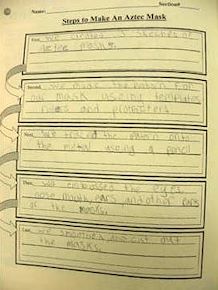 Name: Section#
Steps to Make An Aztec Mask
First, we created 3 sketches of
aztec masks.
Second, we made the pattern for
our mask using templates,
rulers and protractors.
Next, we traced the pattern onto
the metal using a pencil
Then, we embossed the eyes,
nose, mouth, ears, and other parts
of the masks.
Last, we smoothed out
the masks.